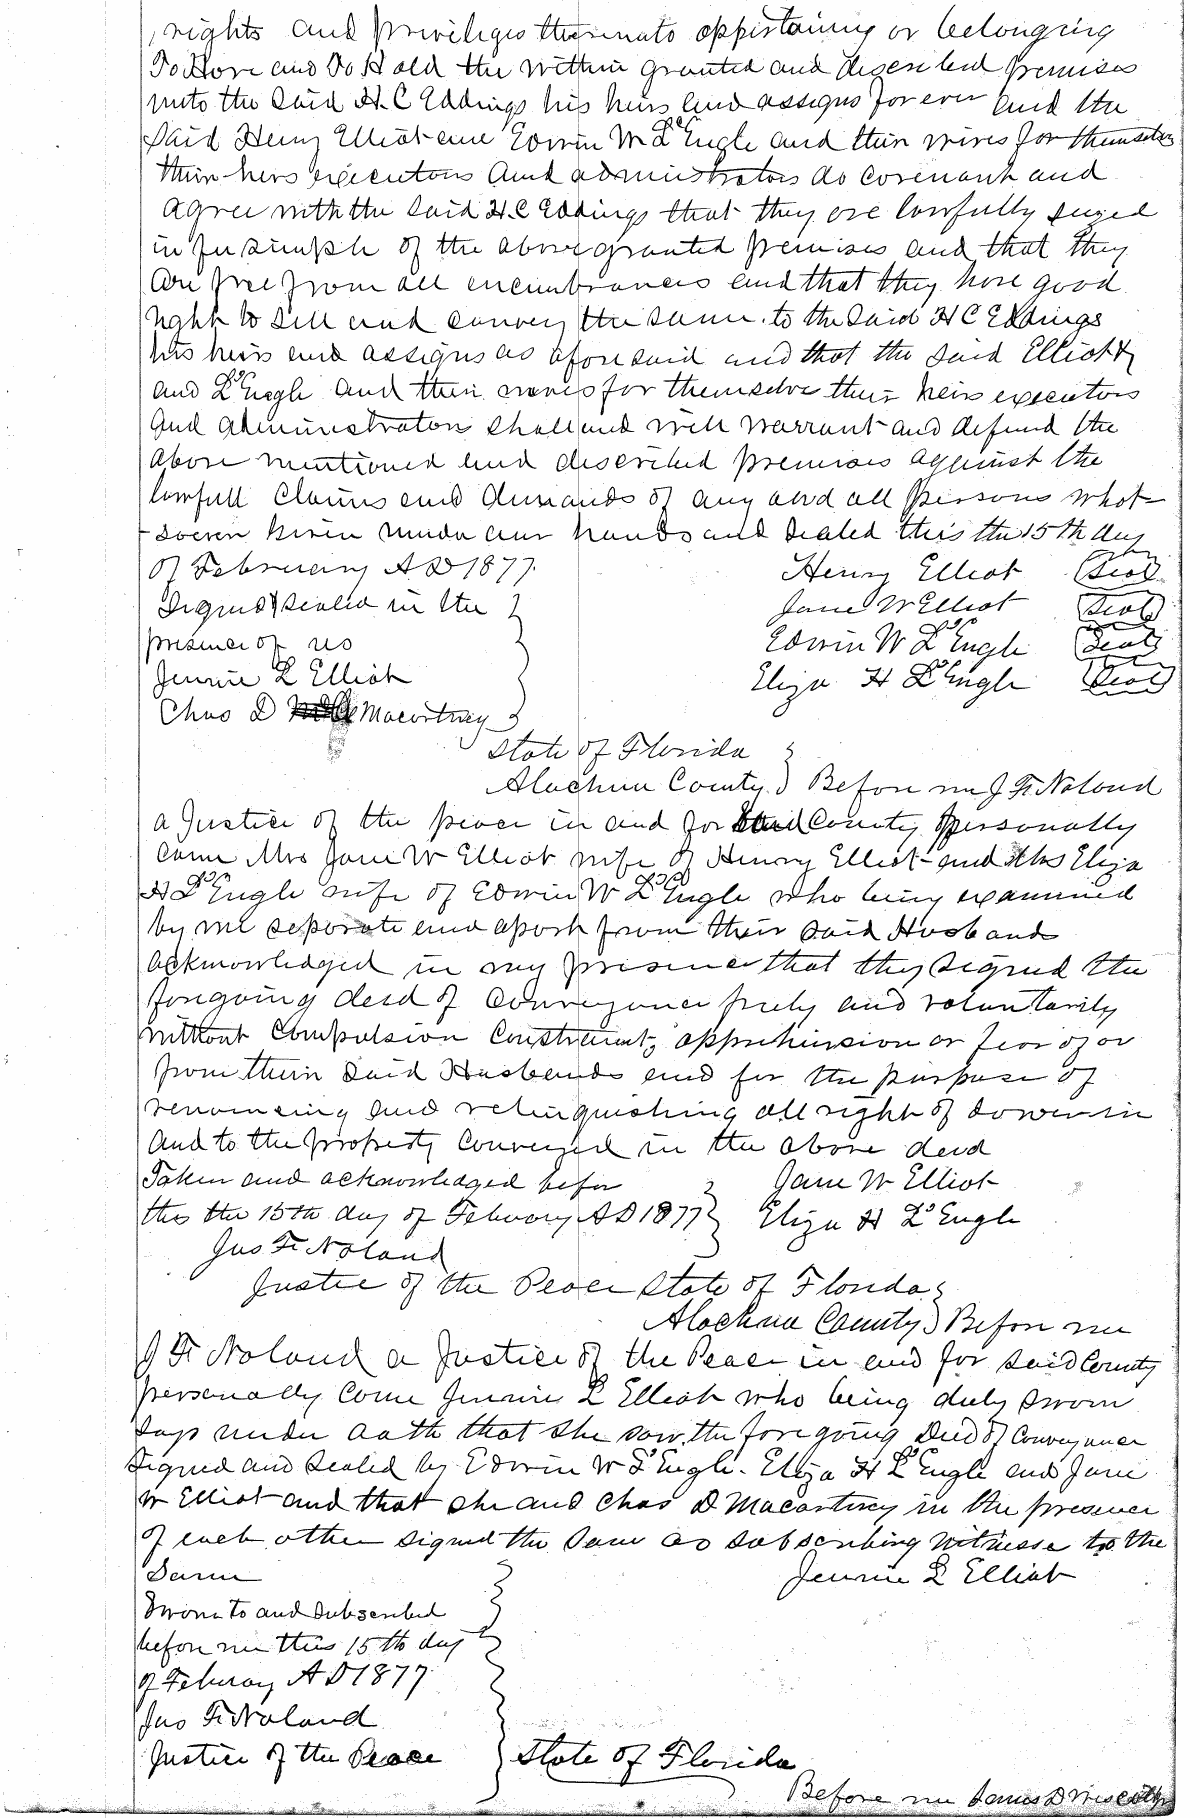 rights and privileges thereunto appertaining or belonging
To Have and To Hold the within granted and described premises
unto the said H. C Eddings his heirs and assigns for ever and the
Said Henry Elliot and Edwin W L'Engle and their wives for themselves
their heirs executors and administrators do covenant and
agree with the said H. C Eddings that they are lawfully seized
in fee simple of the above granted premises and that they
are free from all encumbrances and that they have good
right to sell and convey the same to the said H C Eddings
his heirs and assigns as aforesaid and that the said Elliot
and L'Engle and their wives for themselve their heirs executors
and administrators shall and will warrant and defend the
above mentioned and described premises against the
lawfull claims and demands of any and all persons what
-soever Given under our hands and sealed this the 15th day
of February A D 1877. Henry Elliot (Seal)
Signed & sealed in the Jane W Elliot (Seal)
presence of us Edwin W L'Engle (Seal)
Jennie L Elliot Eliza H L'Engle (Seal)
Chas D Macartney
State of Florida
Alachua County) Before me J F. Noland
a Justice of the peace in and for said County personally
came Mrs Jane W Elliot wife of Henry Elliot and Mrs Eliza
H L'Engle wife of Edwin W L'Engle who being examined
by me seperate and apart from their said Husbands
acknowledged in my presence that they signed the
foregoing deed of conveyance freely and voluntarily
without compulsion constraint, apprehension or fear of or
from their said Husbands and for the purpose of
renouncing and relinquishing all right of dower in
and to the property conveyed in the above deed
Taken and acknowledged before Jane W Elliot
this the 15th day of Febuary A D 1877 Eliza H L'Engle
Jas F. Noland
Justice of the Peace State of Florida
Alachua County) Before me
J F. Noland a Justice of the Peace in and for said County
personally came Jennie L Elliot who being duly sworn
says under oath that she saw the foregoing Deed of Conveyance
signed and sealed by Edwin W L'Engle. Eliza H L'Engle and Jane
W Elliot and that she and Chas D Macartney in the presence
of each other signed the same as subscribing witnesse to the
Same Jennie L Elliot
Sworn to and subscribed
before me this 15th day
of Febuary A D 1877.
Jas F. Noland
Justice of the Peace State of Florida
Before me James D